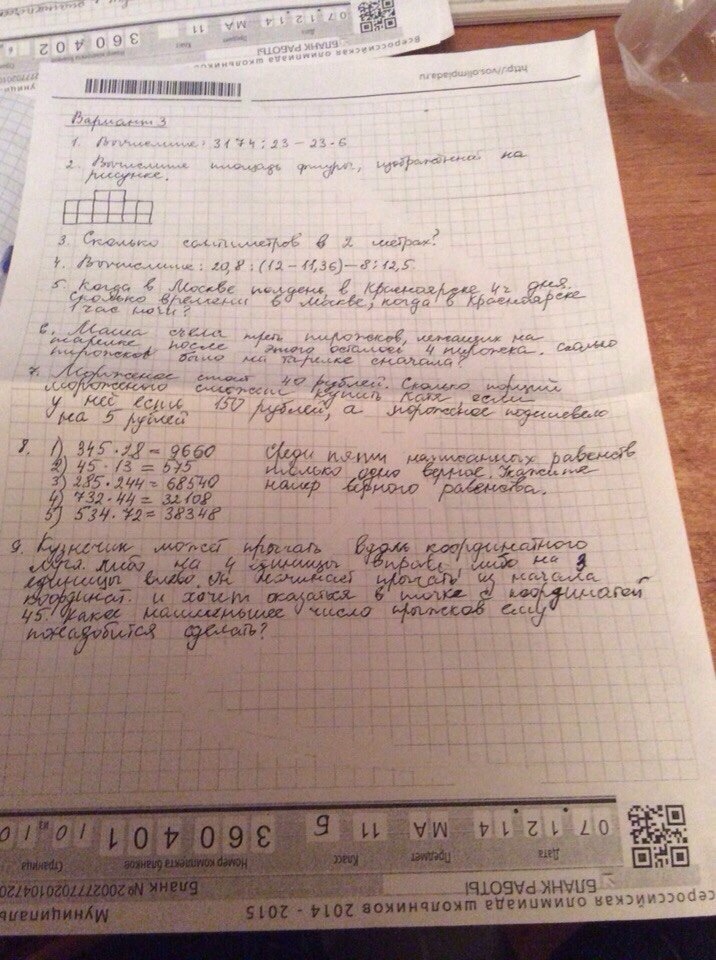 07.12.14 МА 360402
Дата Предмет Класс
БЛАНК РАБОТЫ
Всероссийская олимпиада школьников
http://vos.olimpiada.ru
Вариант 3
1. Вычислите: 3174 : 23 – 23 · 6
2. Вычислите площадь фигуры, изображённой на
рисунке.
3. Сколько сантиметров в 2 метрах?
4. Вычислите: 20,8 : (12 – 11,36) – 8 : 12,5
5. Когда в Москве полдень, в Красноярске 4 ч дня.
Сколько времени в Москве, когда в Красноярске
1 час ночи?
6. Маша съела треть пирожков, лежащих на
тарелке после этого осталось 4 пирожка. Сколько
пирожков было на тарелке сначала?
7. Мороженое стоит 40 рублей. Сколько порций
мороженого сможет купить Катя, если
у неё есть 150 рублей, а мороженое подешевело
на 5 рублей
8. 1) 345 · 28 = 9660 Среди пяти написанных равенств
2) 45 · 13 = 575 только одно верное. Укажите
3) 285 · 244 = 68540 номер верного равенства.
4) 732 · 44 = 32108
5) 534 · 72 = 38348
9. Кузнечик может прыгать вдоль координатного
луча либо на 4 единицы вправо, либо на 3
единицы влево. Он начинает прыгать из начала
координат и хочет оказаться в точке с координатой
45. Какое наименьшее число прыжков ему
понадобится сделать?
07.12.14 МА 11 Б 360401 10.10
Дата Предмет Класс Номер комплекта бланков Страница из
БЛАНК РАБОТЫ Бланк № 2002777020104720
Всероссийская олимпиада школьников 2014 - 2015 Муниципаль